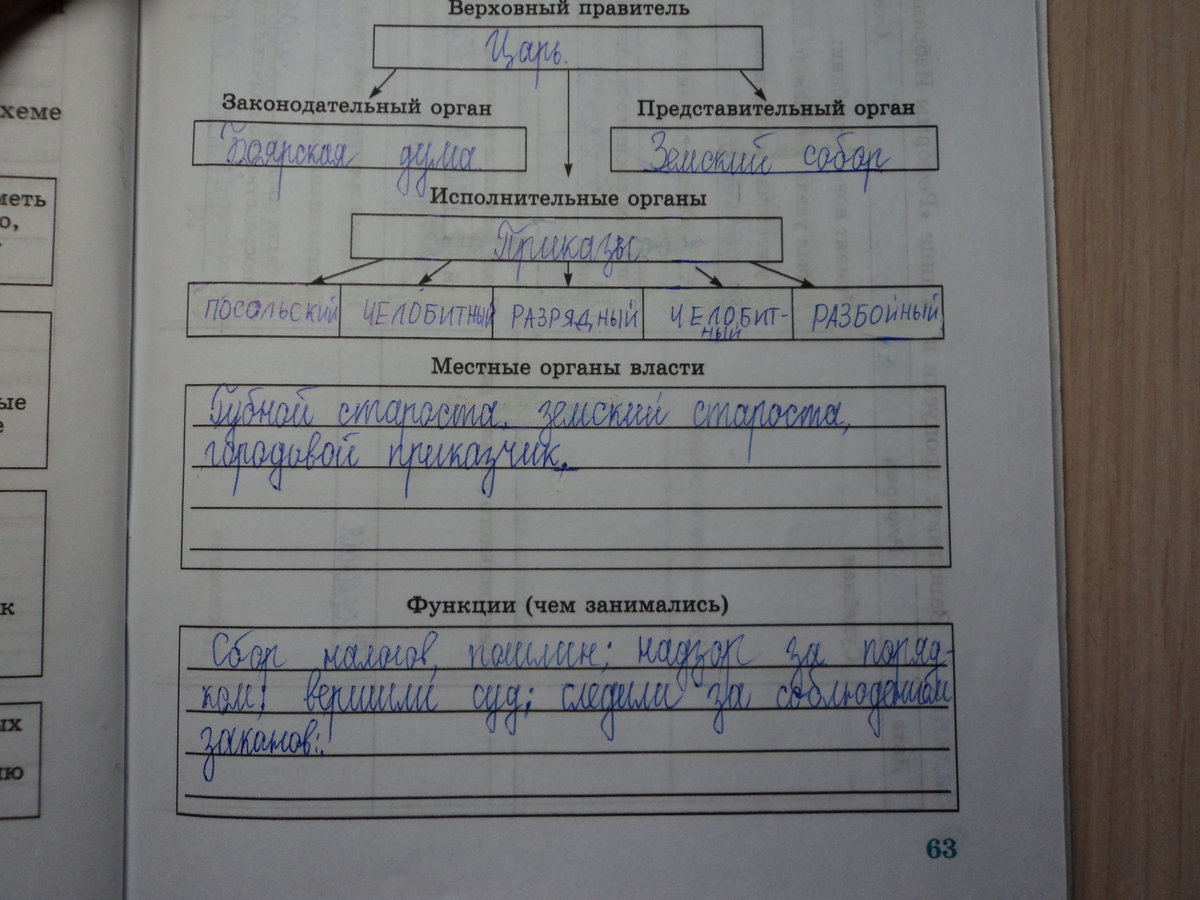 ей
Верховный правитель
Царь.
хеме
Законодательный орган
Представительный орган
Боярская дума.
Земский собор
меть
о,
Исполнительные органы
Приказы
ПОСОЛЬСКИЙ ЧЕЛОБИТНЫЙ РАЗРЯДНЫЙ ЧЕЛОБИТ-
НЫЙ РАЗБОЙНЫЙ
Местные органы власти
ые
е
Губной староста, земский староста,
городовой приказчик.
к
Функции (чем занимались)
Сбор налогов, пошлин; надзор за поряд-
ком; вершили суд; следили за соблюдением
законов.
ых
ию
63